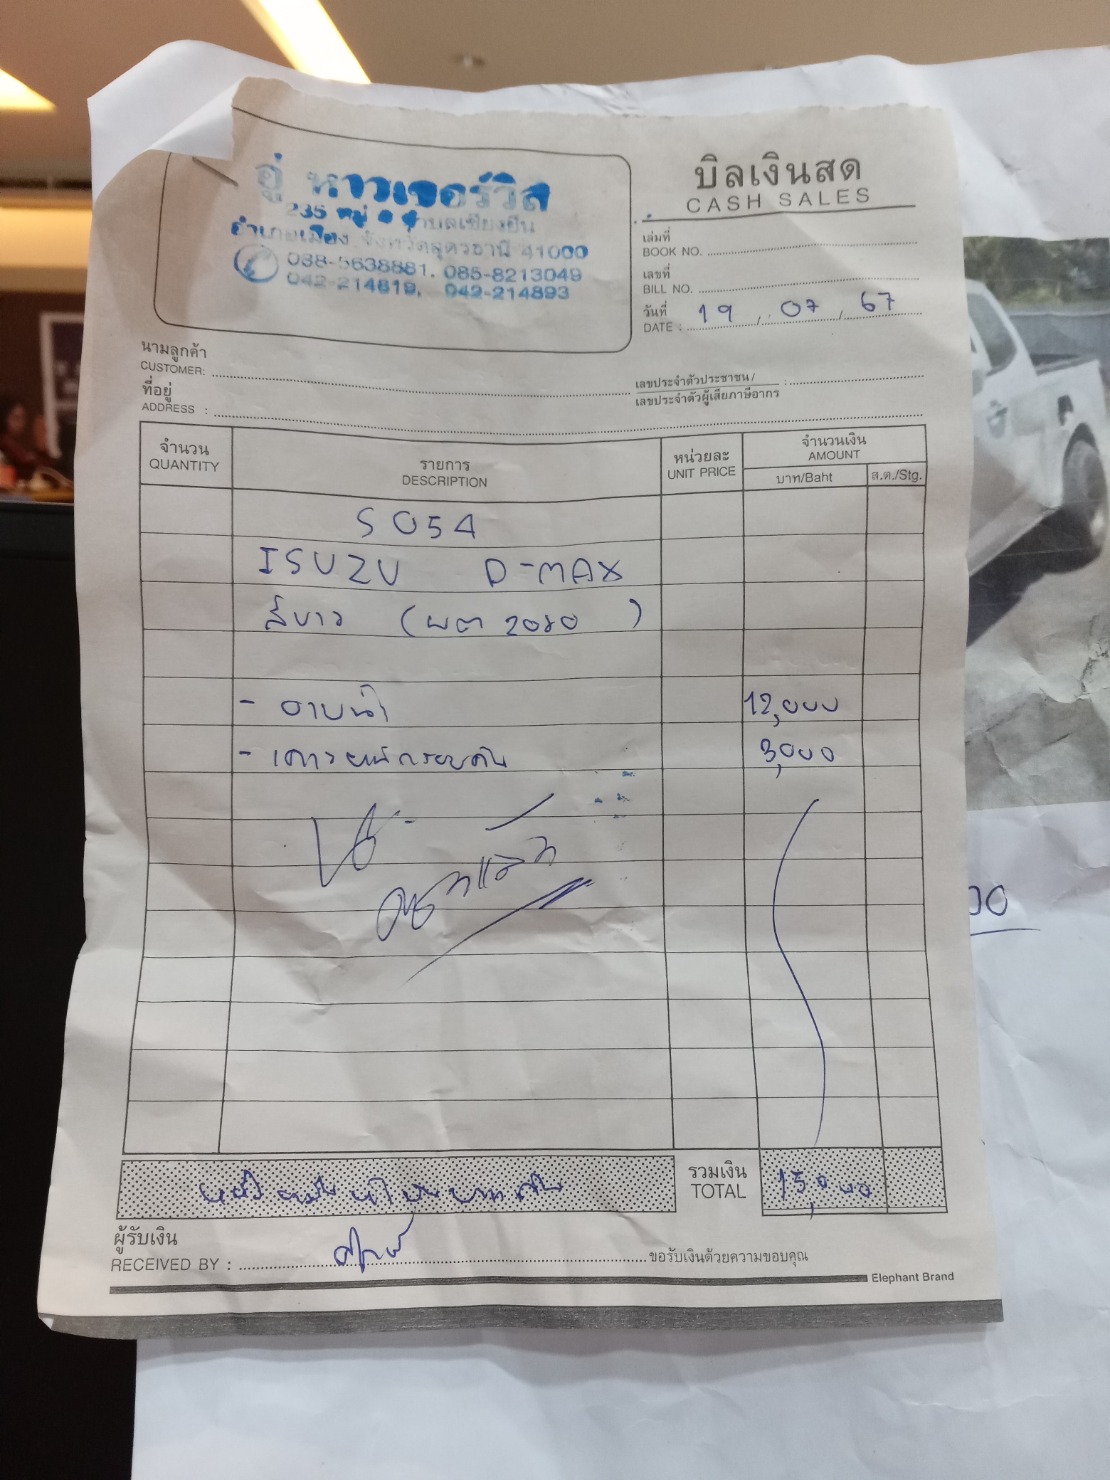 อู่ หาวเซอร์วิส
235 หมู่ ตำบลเชียงยืน
อำเภอเมือง จังหวัดอุดรธานี 41000
088-5638881, 085-8213049
042-214819, 042-214893
บิลเงินสด
CASH SALES
เล่มที่
BOOK NO.
เลขที่
BILL NO.
วันที่
DATE : 19 / 07 / 67
นามลูกค้า
CUSTOMER:
ที่อยู่
ADDRESS :
เลขประจำตัวประชาชน/ :
เลขประจำตัวผู้เสียภาษีอากร
จำนวน
QUANTITY
รายการ
DESCRIPTION
หน่วยละ
UNIT PRICE
จำนวนเงิน
AMOUNT
บาท/Baht ส.ต./Stg.
5054
ISUZU D-MAX
สีขาว ( ผต 2080 )
- อาบน้ำ 12,000
- เคาะ รอบคัน 3,000
รวมเงิน
TOTAL 15,000
ผู้รับเงิน
RECEIVED BY : ขอรับเงินด้วยความขอบคุณ
Elephant Brand
00